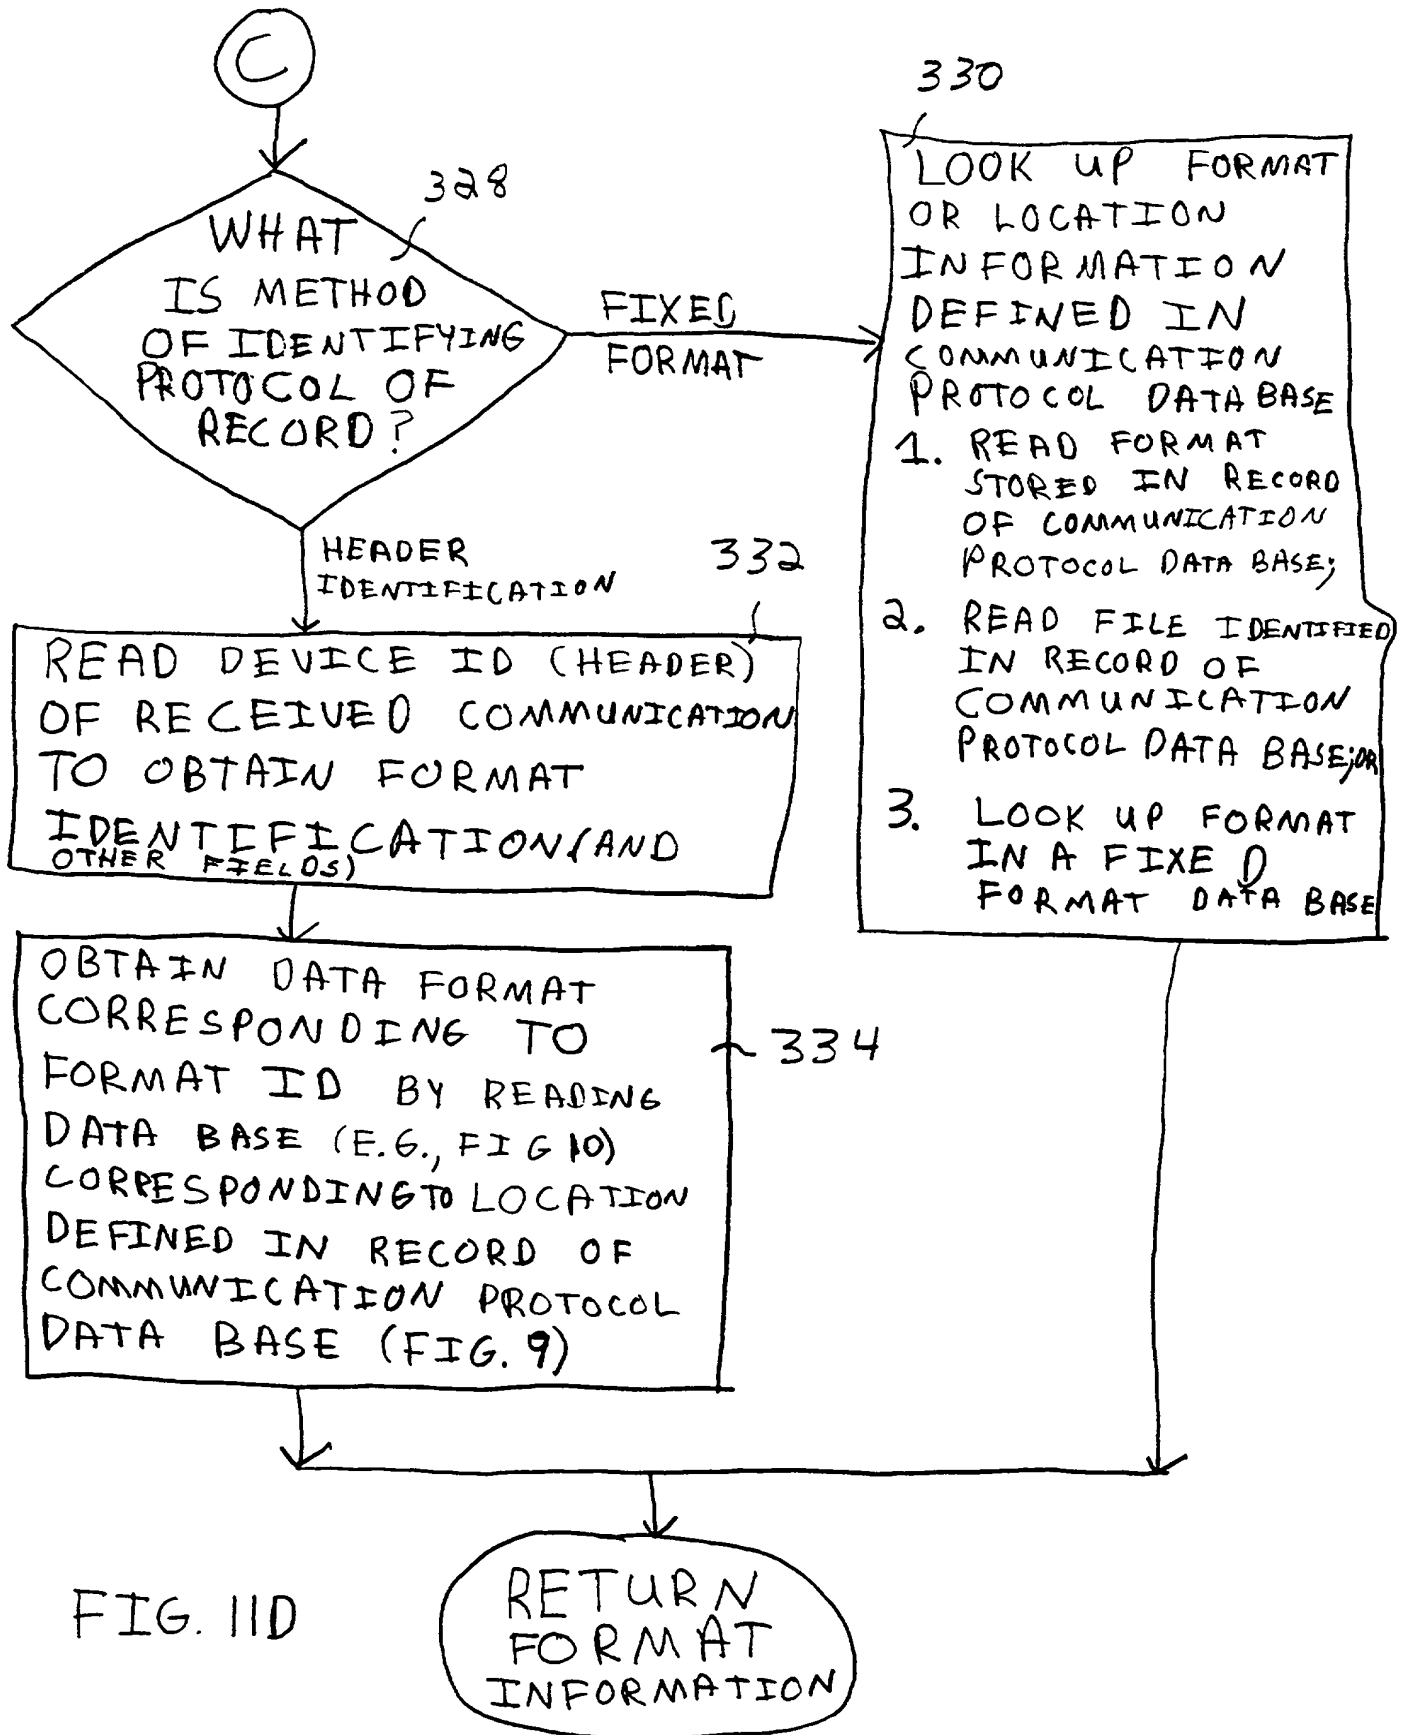 C
328
WHAT
IS METHOD
OF IDENTIFYING
PROTOCOL OF
RECORD?
FIXED
FORMAT
330
LOOK UP FORMAT
OR LOCATION
INFORMATION
DEFINED IN
COMMUNICATION
PROTOCOL DATA BASE
1. READ FORMAT
STORED IN RECORD
OF COMMUNICATION
PROTOCOL DATA BASE;
2. READ FILE IDENTIFIED
IN RECORD OF
COMMUNICATION
PROTOCOL DATA BASE; OR
3. LOOK UP FORMAT
IN A FIXED
FORMAT DATA BASE
HEADER
IDENTIFICATION
332
READ DEVICE ID (HEADER)
OF RECEIVED COMMUNICATION
TO OBTAIN FORMAT
IDENTIFICATION (AND
OTHER FIELDS)
OBTAIN DATA FORMAT
CORRESPONDING TO
FORMAT ID BY READING
DATA BASE (E.G., FIG 10)
CORRESPONDING TO LOCATION
DEFINED IN RECORD OF
COMMUNICATION PROTOCOL
DATA BASE (FIG. 9)
334
RETURN
FORMAT
INFORMATION
FIG. 11D